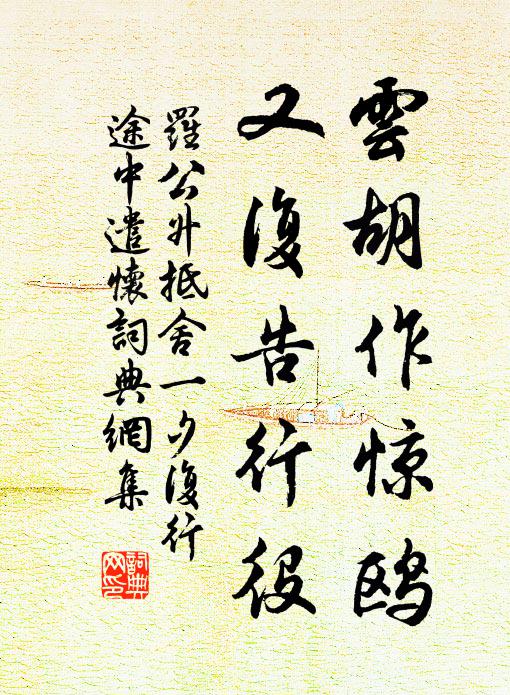 雲胡作惊鸥
又復告行役
羅公升抵舍一夕復行
途中遣懷詞典網集
詞典
网印